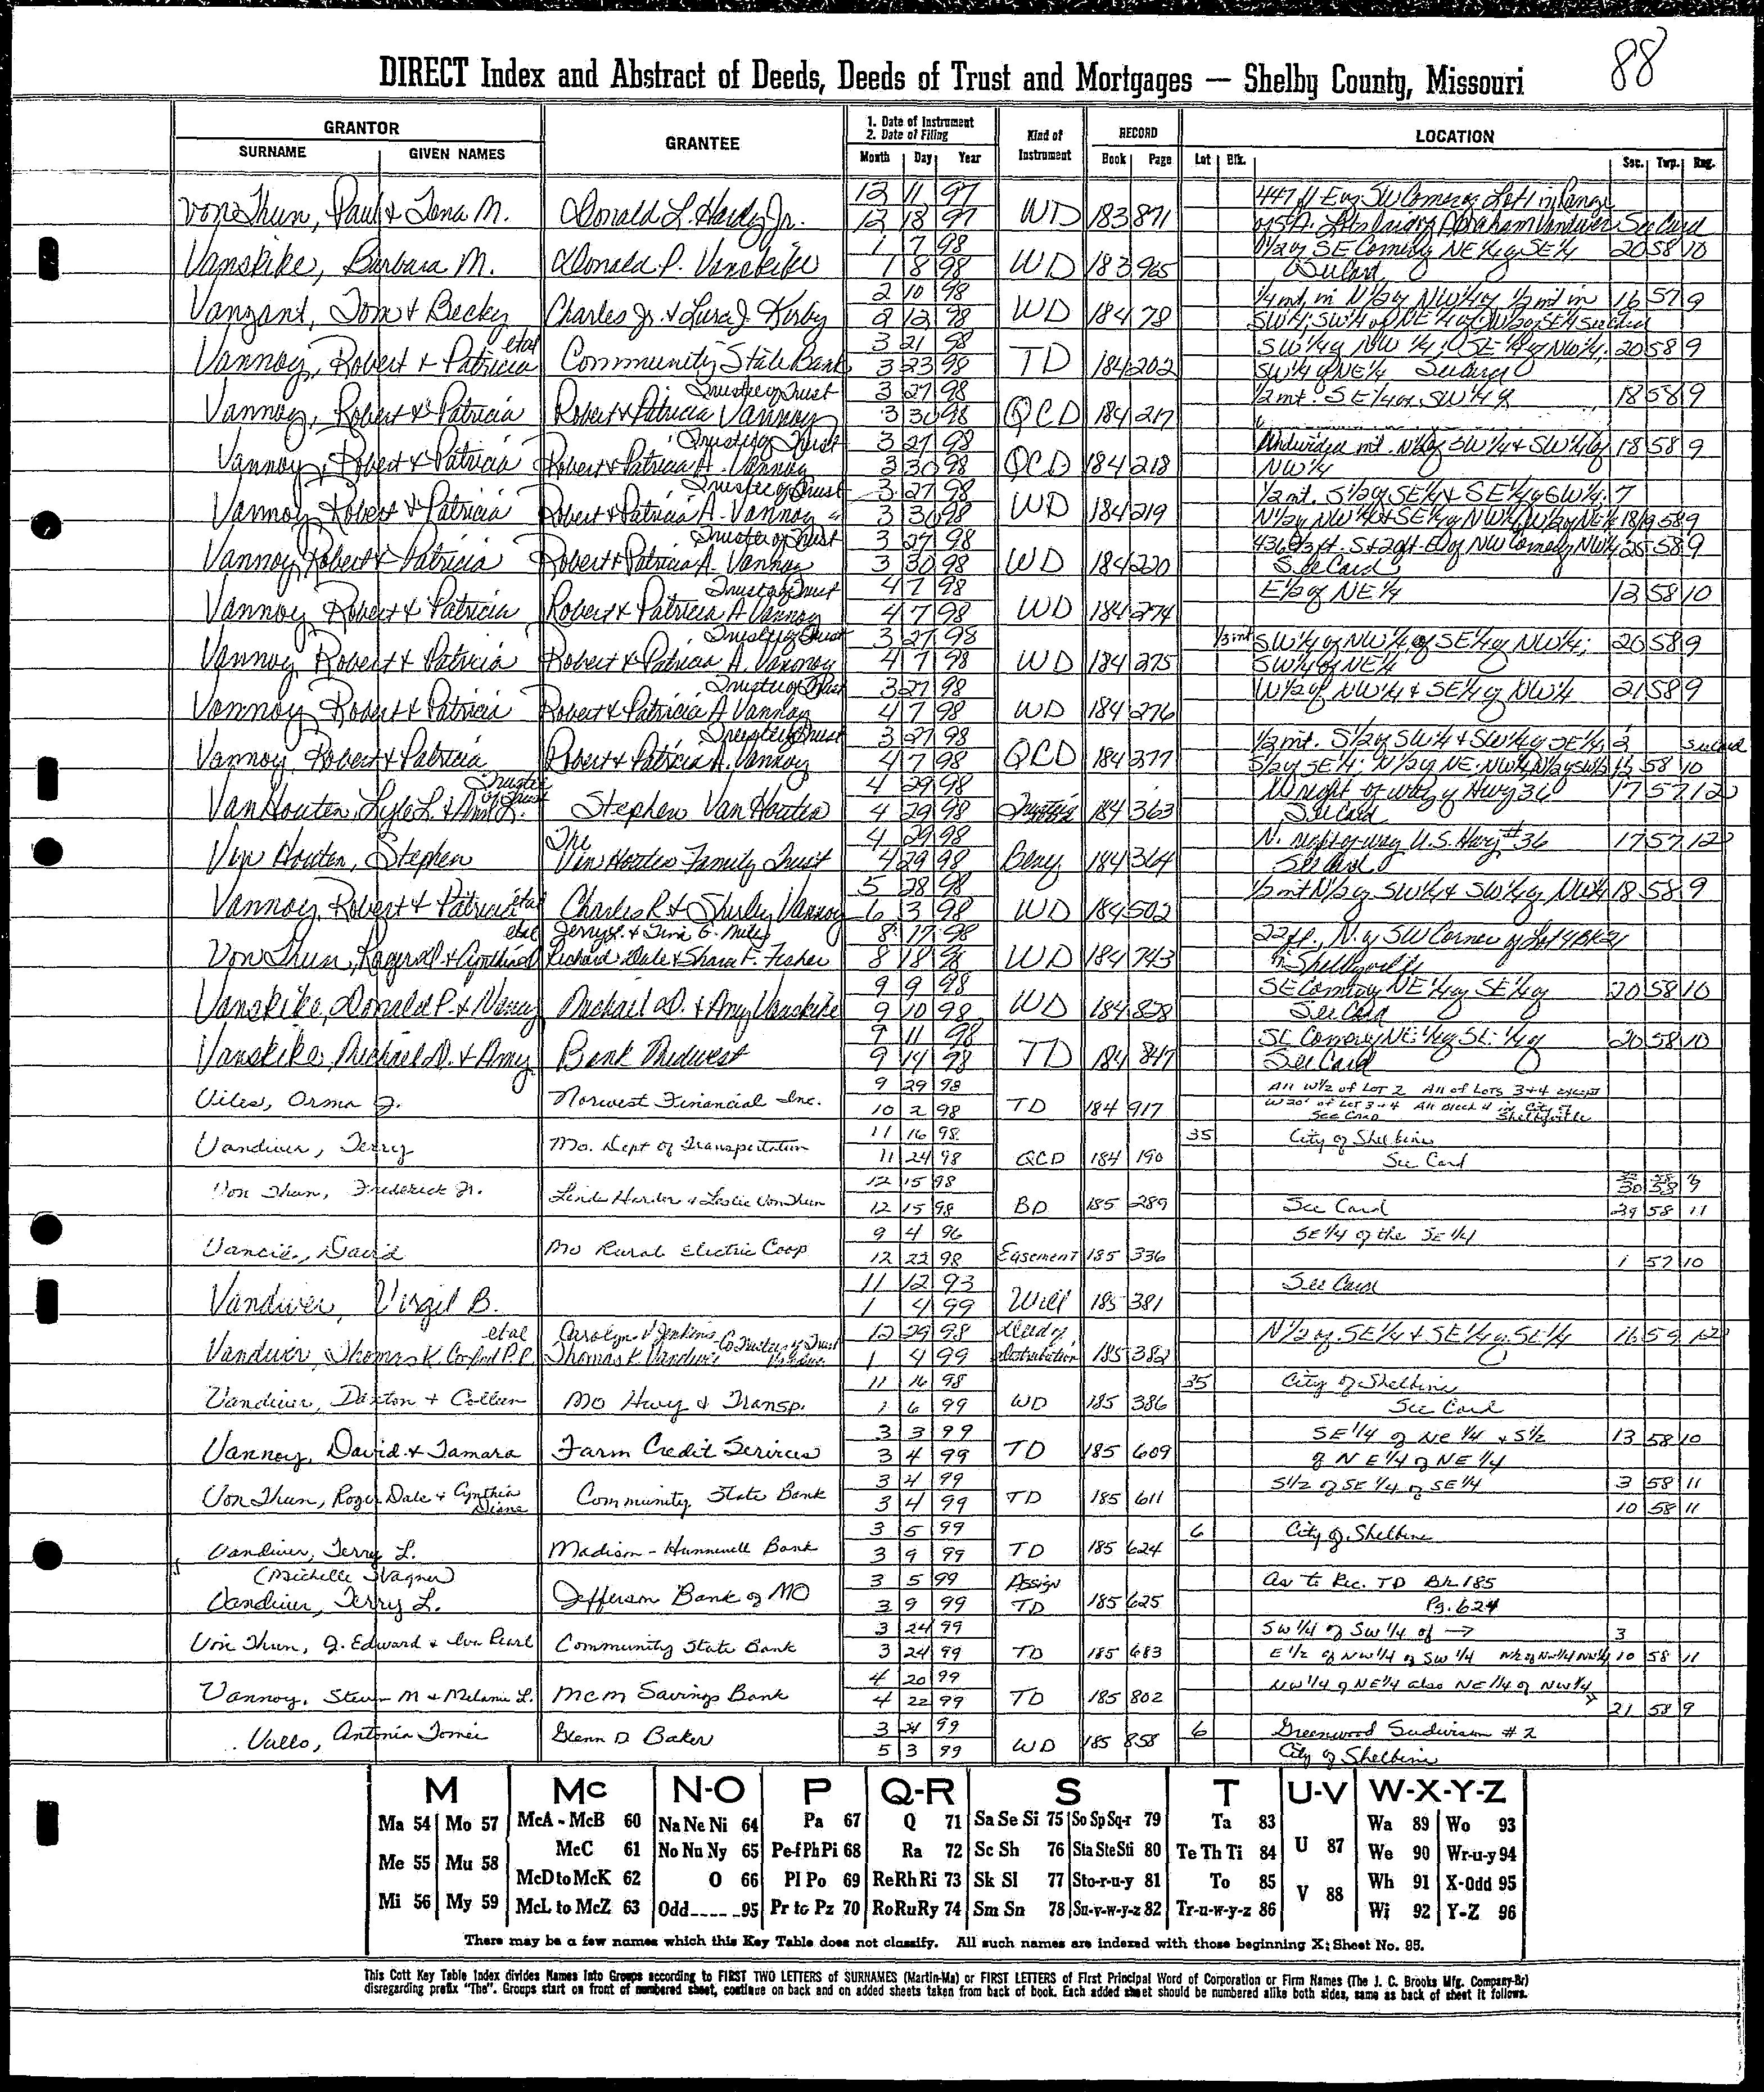 88
DIRECT Index and Abstract of Deeds, Deeds of Trust and Mortgages — Shelby County, Missouri
GRANTOR
SURNAME GIVEN NAMES
GRANTEE
1. Date of Instrument
2. Date of Filing
Month Day Year
Kind of Instrument
RECORD
Book Page
LOCATION
Lot Blk. Sec. Twp. Rng.
12 11 97
Von Thun, Paul & Lena M. Donald L. Hardy Jr. 12 18 97 WD 183 871 See Card
1 7 98 SE Corner of NE 1/4 of SE 1/4 20 58 10
Vanskike, Barbara M. Donald P. Vanskike 1 8 98 WD 183 965 See Card
2 10 98 1/4 int. in N 1/2 of NW 1/4 of 1/2 int in 16 57 9
Vanzant, Tom & Becky Charles Jr. & Lura J. Kirby 2 12 98 WD 184 78 SW 1/4; SW 1/4 of NE 1/4 See Card
etal 3 21 98 SW 1/4 of NW 1/4; SE 1/4 of NW 1/4; 20 58 9
Vannoy, Robert & Patricia Community State Bank 3 23 98 TD 184 202 SW 1/4 of NE 1/4 See Card
Trustee of Trust 3 27 98 1/2 int. SE 1/4 of SW 1/4 18 58 9
Vannoy, Robert & Patricia Robert & Patricia Vannoy 3 30 98 QCD 184 217
Trustee of Trust 3 27 98 Undivided int. N 1/2 of SW 1/4 & SW 1/4 of 18 58 9
Vannoy, Robert & Patricia Robert & Patricia A. Vannoy 3 30 98 QCD 184 218 NW 1/4
Trustee of Trust 3 27 98 1/2 int. S 1/2 of SE 1/4 & SE 1/4 of SW 1/4; 7
Vannoy, Robert & Patricia Robert & Patricia A. Vannoy 3 30 98 WD 184 219 N 1/2 of NW 1/4 & SE 1/4 of NW 1/4; W 1/2 of NE 1/4 18/19 58 9
Trustee of Trust 3 27 98 NW 1/4 25 58 9
Vannoy, Robert & Patricia Robert & Patricia A. Vannoy 3 30 98 WD 184 220 See Card
Trust of Trust 4 7 98 E 1/2 of NE 1/4 12 58 10
Vannoy, Robert & Patricia Robert & Patricia A Vannoy 4 7 98 WD 184 274
Trustee of Trust 3 27 98 1/3 int SW 1/4 of NW 1/4 of SE 1/4 of NW 1/4; 20 58 9
Vannoy, Robert & Patricia Robert & Patricia A. Vannoy 4 7 98 WD 184 275 SW 1/4 of NE 1/4
Trustee of Trust 3 27 98 W 1/2 of NW 1/4 & SE 1/4 of NW 1/4 21 58 9
Vannoy, Robert & Patricia Robert & Patricia A Vannoy 4 7 98 WD 184 276
Trustee of Trust 3 27 98 1/2 int. S 1/2 of SW 1/4 & SW 1/4 of SE 1/4; 2 See Card
Vannoy, Robert & Patricia Robert & Patricia A. Vannoy 4 7 98 QCD 184 277 58 10
Trustee of Trust 4 29 98 N right of way of Hwy 36 17 57 12
VanHouten, Lyle L. & Ann L. Stephen Van Houten 4 29 98 184 363 See Card
The 4 29 98 N. right-of-way U.S. Hwy #36 17 57 12
Van Houten, Stephen Van Houten Family Trust 4 29 98 Beny 184 364 See Card
etal 5 28 98 1/2 int N 1/2 of SW 1/4 & SW 1/4 of NW 1/4 18 58 9
Vannoy, Robert & Patricia Charles R. & Shirley Vannoy 6 3 98 WD 184 502
etal 8 17 98 22 ft., N. of SW Corner of Lot 4
Von Thun, Roger D. & Cynthia D. Richard Dale & Sharon F. Fisher 8 18 98 WD 184 743 in Shelbyville
9 9 98 SE Corner of NE 1/4 of SE 1/4 of 20 58 10
Vanskike, Donald P. & Nancy Michael D. & Amy Vanskike 9 10 98 WD 184 828 See Card
9 11 98 SE Corner of NE 1/4 of SE 1/4 of 20 58 10
Vanskike, Michael D. & Amy Bank Midwest 9 14 98 TD 184 847 See Card
9 29 98 All W 1/2 of Lot 2 All of Lots 3+4 except
Viles, Orma J. Norwest Financial Inc. 10 2 98 TD 184 917 W 20' of Lot 3+4 All Block 4 in City of
See Card Shelbyville
11 16 98 35 City of Shelbina
Vandiver, Terry Mo. Dept of Transportation 11 24 98 QCD 184 190 See Card
12 15 98 30 58 9
Von Thun, Frederick Jr. Linda Harder & Leslie VonThun 12 15 98 BD 185 289 See Card 29 58 11
9 4 96 SE 1/4 of the SE 1/4
Vancil, David Mo Rural Electric Coop 12 22 98 Easement 185 336 1 57 10
11 12 93 See Card
Vandiver, Virgil B. 1 4 99 Will 185 381
etal Carolyn V Jenkins Co Trustees of Trust 12 29 98 Deed of N 1/2 of SE 1/4 & SE 1/4 of SE 1/4 16 59 12
Vandiver, Thomas K. Thomas K. Vandiver 1 4 99 Distribution 185 382
11 16 98 35 City of Shelbina
Vandiver, Daxton & Colleen Mo Hwy & Transp. 1 6 99 WD 185 386 See Card
3 3 99 SE 1/4 of NE 1/4 & S 1/2 13 58 10
Vannoy, David & Tamara Farm Credit Services 3 4 99 TD 185 609 of NE 1/4 of NE 1/4
3 4 99 S 1/2 of SE 1/4 of SE 1/4 3 58 11
Von Thun, Roger Dale & Cynthia Diane Community State Bank 3 4 99 TD 185 611 10 58 11
3 5 99 6 City of Shelbina
Vandiver, Terry L. Madison-Hunnewell Bank 3 9 99 TD 185 624
(Michelle Wagner) 3 5 99 Assign As to Rec. TD Bk 185
Vandiver, Terry L. Jefferson Bank of MO 3 9 99 TD 185 625 Pg. 624
3 24 99 SW 1/4 of SW 1/4 of → 3
Von Thun, J. Edward & Iva Pearl Community State Bank 3 24 99 TD 185 683 E 1/2 of NW 1/4 of SW 1/4 N 1/2 of NW 1/4 NW 1/4 10 58 11
4 20 99 NW 1/4 of NE 1/4 also NE 1/4 of NW 1/4
Vannoy, Steven M & Melanie L. MCM Savings Bank 4 22 99 TD 185 802 21 58 9
3 24 99 6 Greenwood Sudivision #2
Vullo, Antonia Tomei Glenn D Baker 5 3 99 WD 185 858 City of Shelbina
M Mc N-O P Q-R S T U-V W-X-Y-Z
Ma 54 Mo 57 McA - McB 60 Na Ne Ni 64 Pa 67 Q 71 Sa Se Si 75 So Sp Sq-r 79 Ta 83 Wa 89 Wo 93
Me 55 Mu 58 McC 61 No Nu Ny 65 Pe-f Ph Pi 68 Ra 72 Sc Sh 76 Sta Ste Sti 80 Te Th Ti 84 U 87 We 90 Wr-u-y 94
McD to McK 62 O 66 Pl Po 69 Re Rh Ri 73 Sk Sl 77 Sto-r-u-y 81 To 85 V 88 Wh 91 X-Odd 95
Mi 56 My 59 McL to McZ 63 Odd 95 Pr to Pz 70 Ro Ru Ry 74 Sm Sn 78 Su-v-w-y-z 82 Tr-u-w-y-z 86 Wi 92 Y-Z 96
There may be a few names which this Key Table does not classify. All such names are indexed with those beginning X; Sheet No. 95.
This Cott Key Table Index divides Names Into Groups according to FIRST TWO LETTERS of SURNAMES (Martin-Ma) or FIRST LETTERS of First Principal Word of Corporation or Firm Names (The J. C. Brooks Mfg. Company-Br)
disregarding prefix "The". Groups start on front of numbered sheet, continue on back and on added sheets taken from back of book. Each added sheet should be numbered alike both sides, same as back of sheet it follows.